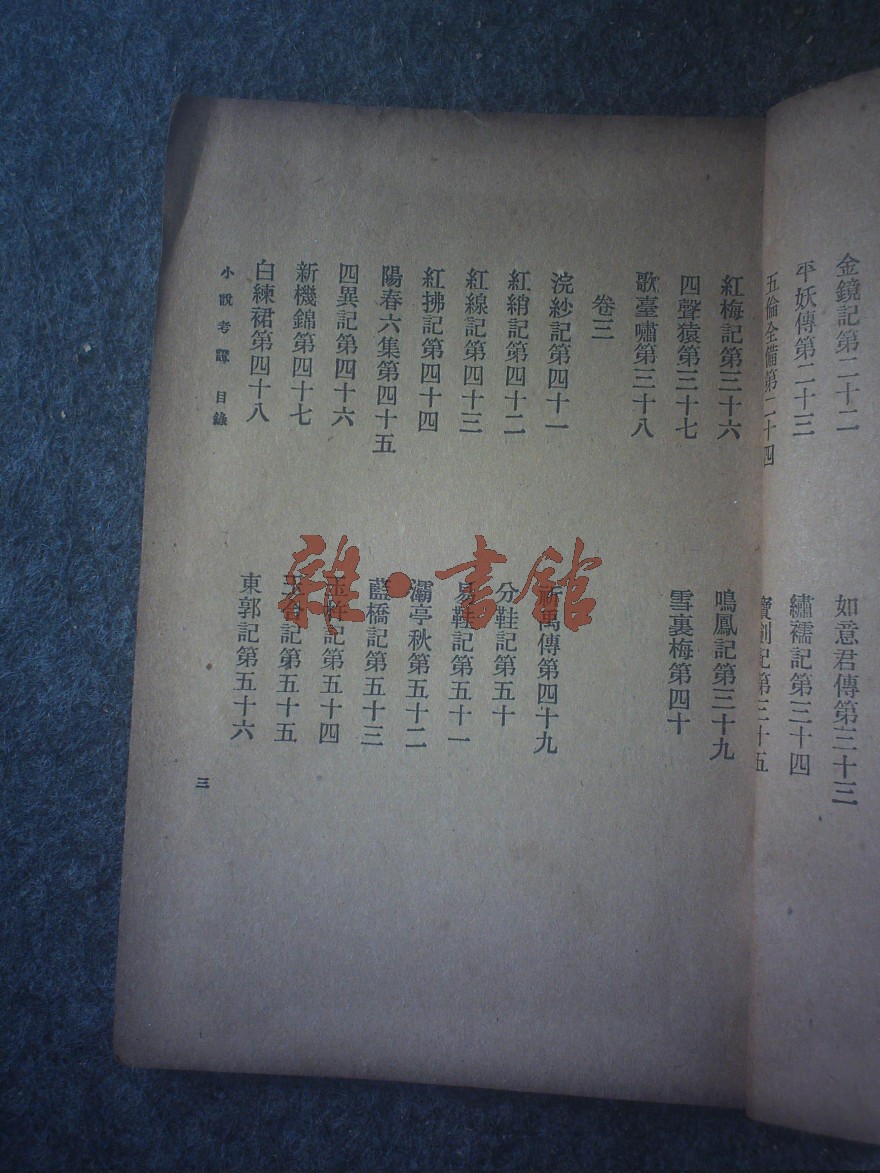 金鏡記第二十二
平妖傳第二十三
五倫全備第二十四
如意君傳第三十三
繡襦記第三十四
寶劍記第三十五
紅梅記第三十六
四聲猿第三十七
歌臺嘯第三十八
鳴鳳記第三十九
雪裏梅第四十
卷三
浣紗記第四十一
紅綃記第四十二
紅線記第四十三
紅拂記第四十四
陽春六集第四十五
四異記第四十六
新機錦第四十七
白練裙第四十八
萬傳第四十九
分鞋記第五十
易鞋記第五十一
灞亭秋第五十二
藍橋記第五十三
玉杵記第五十四
玉合記第五十五
東郭記第五十六
小說考證 目錄
三
雜·書館